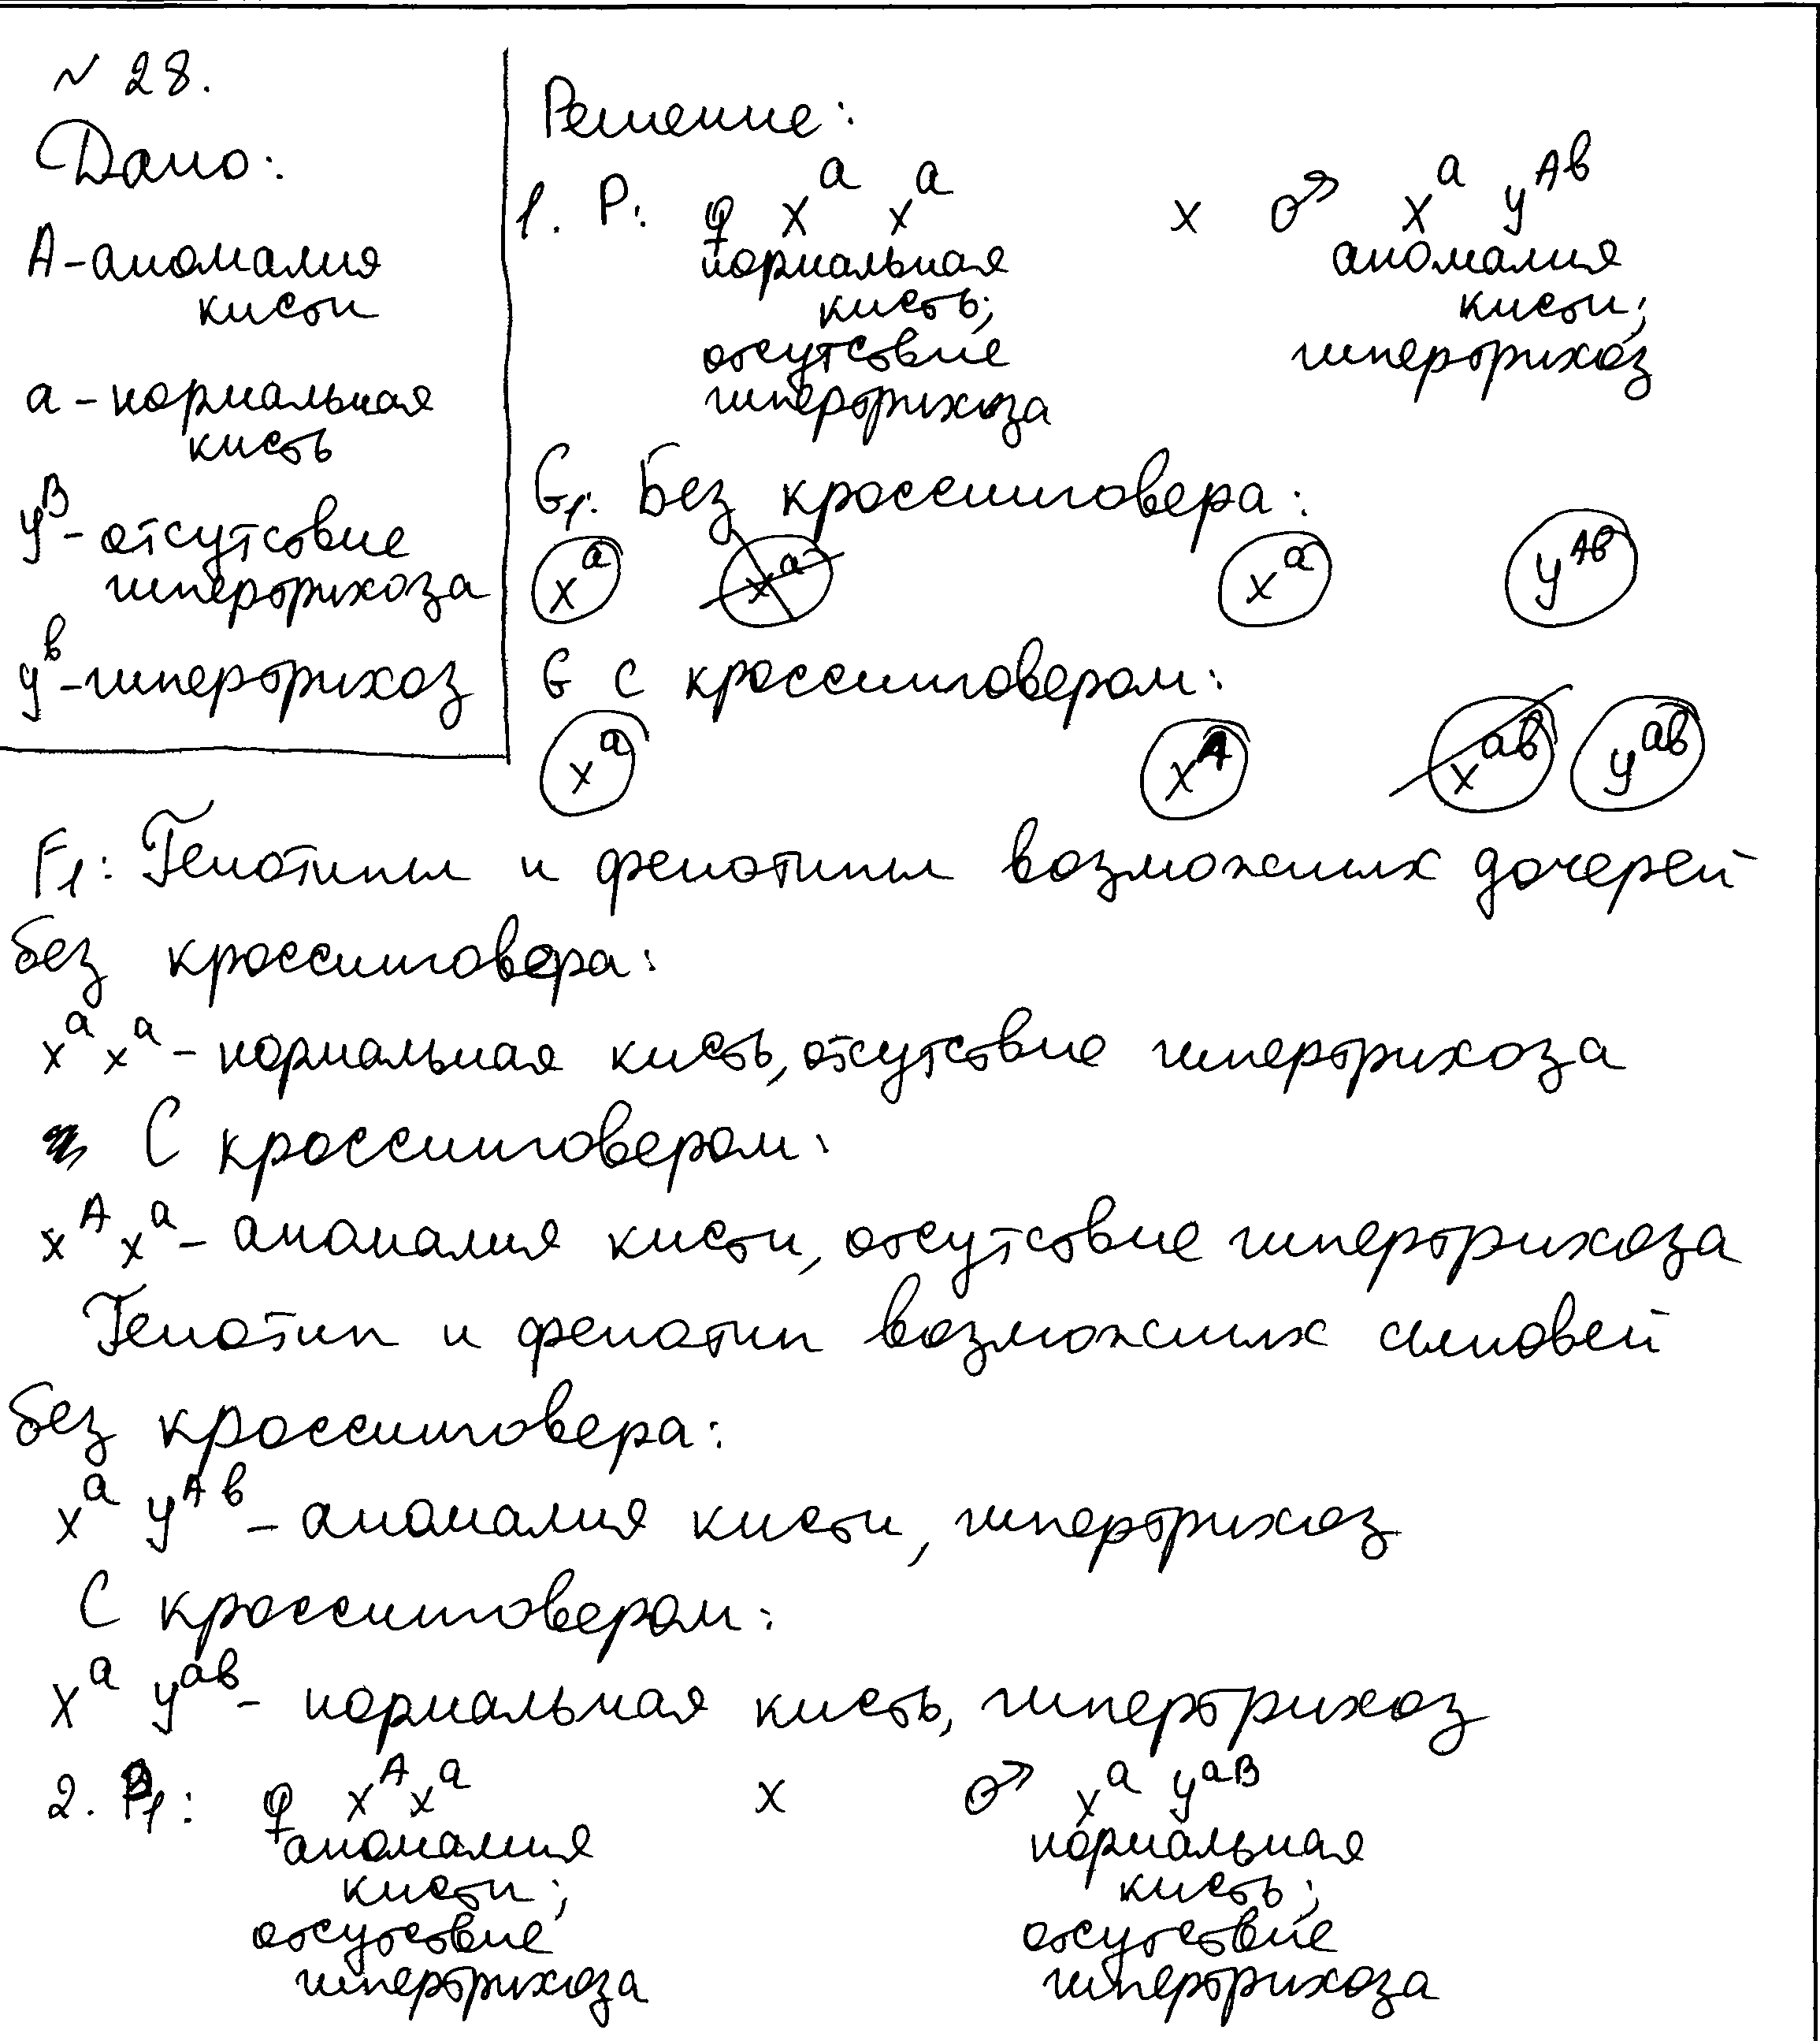 № 28.
Дано:
А - аномалия
кисти
а - нормальная
кисть
y^B - отсутствие
гипертрихоза
y^b - гипертрихоз
Решение:
1. P: ♀ x^a x^a x ♂ x^a y^Ab
нормальная аномалия
кисть; кисти;
отсутствие гипертрихоз
гипертрихоза
G1: Без кроссинговера:
x^a x^a x^a y^Ab
G с кроссинговером:
x^a x^A x^ab y^ab
F1: Генотипы и фенотипы возможных дочерей
без кроссинговера:
x^a x^a - нормальная кисть, отсутствие гипертрихоза
С кроссинговером:
x^A x^a - аномалия кисти, отсутствие гипертрихоза
Генотип и фенотип возможных сыновей
без кроссинговера:
x^a y^Ab - аномалия кисти, гипертрихоз
С кроссинговером:
x^a y^ab - нормальная кисть, гипертрихоз
2. P1: ♀ x^A x^a x ♂ x^a y^aB
аномалия нормальная
кисти; кисть;
отсутствие отсутствие
гипертрихоза гипертрихоза